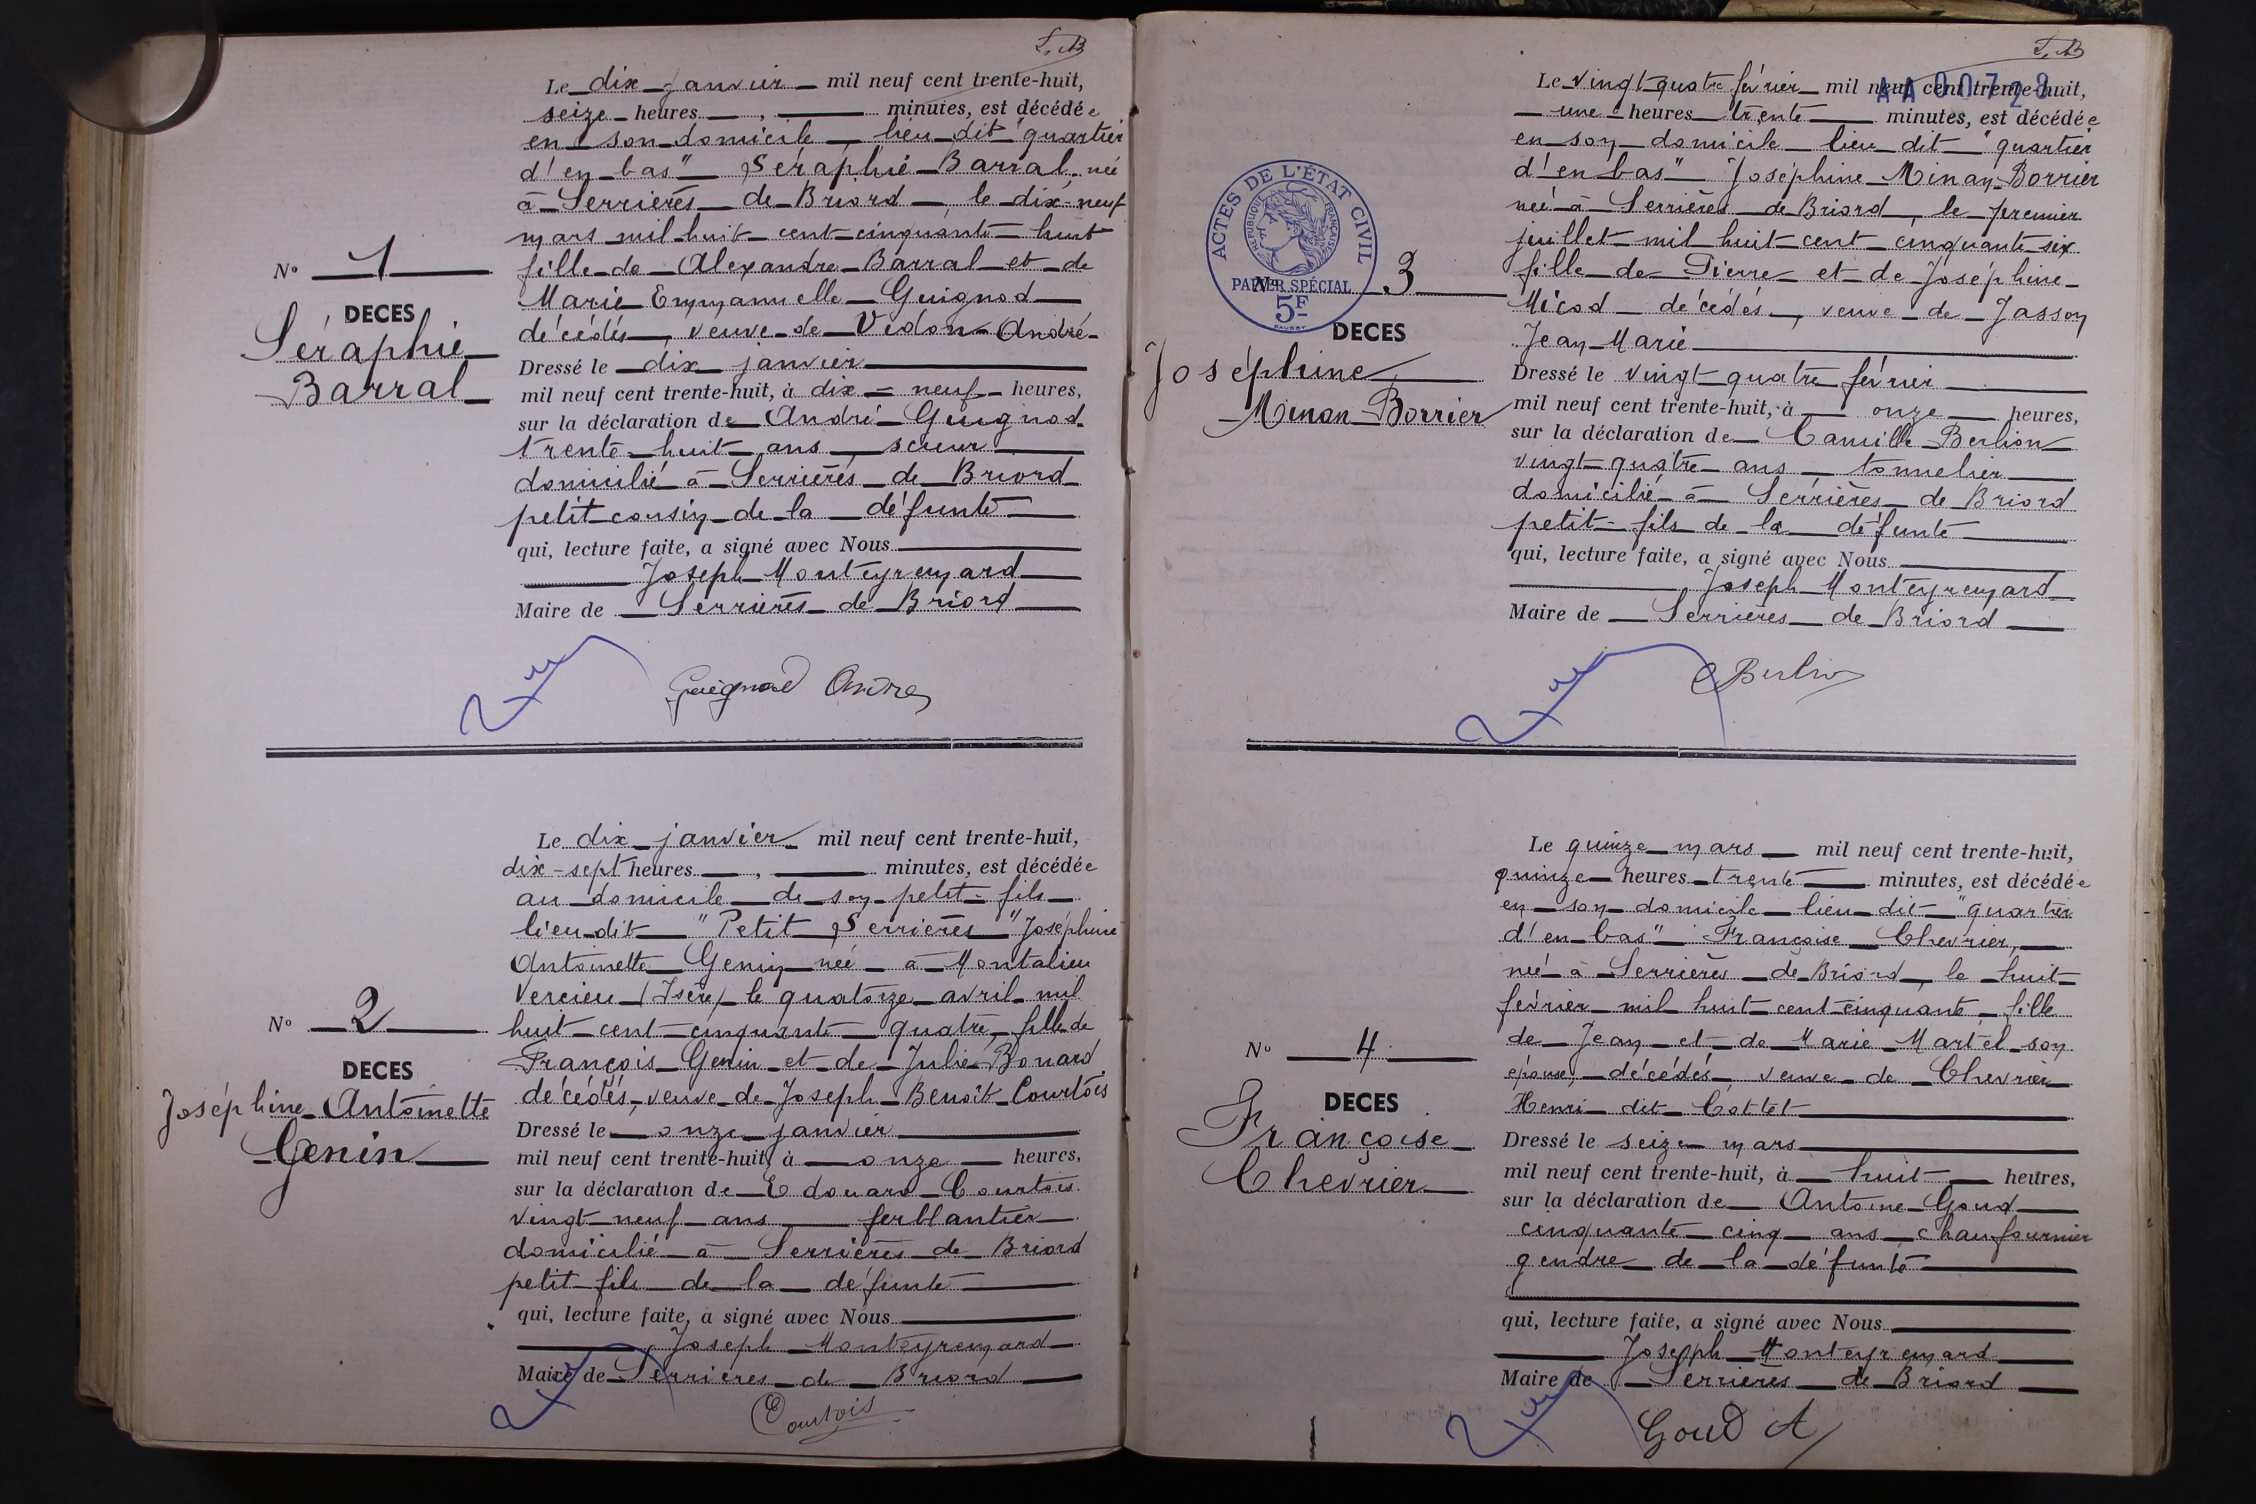 S. B
Le dix janvier mil neuf cent trente-huit,
seize heures , minutes, est décédée
en son domicile lieu dit "quartier
d'en bas" Séraphie Barral, née
à Serrières de Briord, le dix-neuf
mars mil huit cent cinquante huit
fille de Alexandre Barral et de
Marie Emmanuelle Guignod
décédés, veuve de Vedon André
N° 1
DECES
Séraphie
Barral
Dressé le dix janvier
mil neuf cent trente-huit, à dix = neuf heures,
sur la déclaration de André Guignod
trente huit ans, scieur
domicilié à Serrières de Briord
petit cousin de la défunte
qui, lecture faite, a signé avec Nous
Joseph Monteyremard
Maire de Serrières de Briord
Guignod André
Le dix janvier mil neuf cent trente-huit,
dix-sept heures , minutes, est décédée
au domicile de son petit-fils
lieu dit "Petit Serrières" Joséphine
Antoinette Genin née à Montalieu
Vercieu (Isère) le quatorze avril mil
huit cent cinquante quatre, fille de
François Genin et de Julie Bonard
décédés, veuve de Joseph Benoît Courtois
N° 2
DECES
Joséphine Antoinette
Genin
Dressé le onze janvier
mil neuf cent trente-huit, à onze heures,
sur la déclaration de Edouard Courtois
vingt neuf ans ferblantier
domicilié à Serrières de Briord
petit fils de la défunte
qui, lecture faite, a signé avec Nous
Joseph Monteyremard
Maire de Serrières de Briord
Courtois
S. B
AA 00728
Le vingt quatre février mil neuf cent trente-huit,
une heures trente minutes, est décédée
en son domicile lieu dit "quartier
d'en bas" Joséphine Minan-Borrier
née à Serrières de Briord, le premier
juillet mil huit cent cinquante six
fille de Pierre et de Joséphine
Micod décédés, veuve de Jasson
Jean Marie
ACTES DE L'ÉTAT CIVIL
RÉPUBLIQUE FRANÇAISE
PAPIER SPÉCIAL
5F
N° 3
DECES
Joséphine
Minan-Borrier
Dressé le vingt quatre février
mil neuf cent trente-huit, à onze heures,
sur la déclaration de Camille Berlion
vingt quatre ans tonnelier
domicilié à Serrières de Briord
petit-fils de la défunte
qui, lecture faite, a signé avec Nous
Joseph Monteyremard
Maire de Serrières de Briord
C Berlion
Le quinze mars mil neuf cent trente-huit,
quinze heures trente minutes, est décédée
en son domicile lieu dit "quartier
d'en bas" Françoise Chevrier,
née à Serrières de Briord, le huit
février mil huit cent cinquante, fille
de Jean et de Marie Martel son
épouse, décédés, veuve de Chevrier
Henri dit Cottet
N° 4
DECES
Françoise
Chevrier
Dressé le seize mars
mil neuf cent trente-huit, à huit heures,
sur la déclaration de Antoine Goud
cinquante cinq ans chaufournier
gendre de la défunte
qui, lecture faite, a signé avec Nous
Joseph Monteyremard
Maire de Serrières de Briord
Goud A